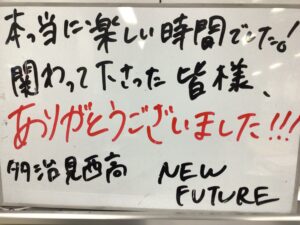 本当に楽しい時間でした!
関わって下さった皆様、
ありがとうございました!!!
多治見西高 NEW
FUTURE